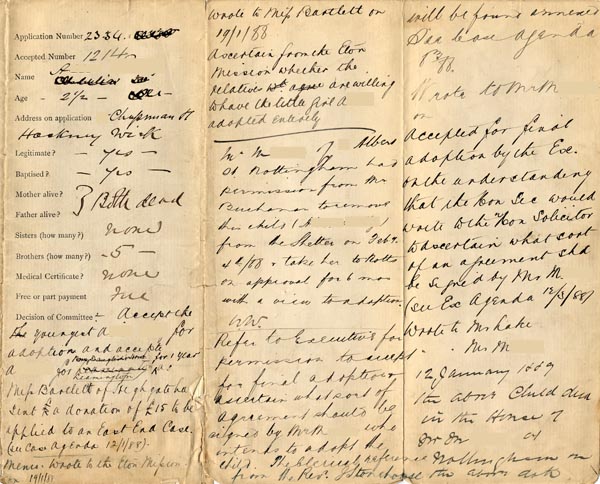 Application Number 2334
Accepted Number 1214
Name
Age - 2½ -
Address on application Chapman St
Hackney Wick
Legitimate? - yes -
Baptised? - yes -
Mother alive? } Both dead
Father alive?
Sisters (how many?) none
Brothers (how many?) - 5 -
Medical Certificate? none
Free or part payment free
Decision of Committee: Accept the
youngest A for
adoption and accept
for 1 year
Leamington
Miss Bartlett of Highgate has
sent £ a donation of £15 to be
applied to an East End Case.
(see Case Agenda 12/1/88).
Memo: Wrote to the Eton Mission
on 19/1/88
Wrote to Miss Bartlett on
19/1/88
Ascertain from the Eton
Mission whether the
relatives are willing
to have the little Girl A
adopted entirely
Mr M of Albert
St. Nottingham had
permission from Mr
Buchanan to remove
this child (A
from the Shelter on Feby.
4th/88 & take her to Notts
on approval for 6 mos
with a view to adoption.
W.W.
Refer to Executive for
permission to accept
for final adoption &
ascertain what sort of
agreement should be
signed by Mr M who
intends to adopt the
child. The Clerical reference
from the Rev. J. Stonehouse
will be found annexed
See Case Agenda
/88.
Wrote to Mr M
on
Accepted for final
adoption by the Ex.
on the understanding
that the Hon Sec would
write to the Hon Solicitor
to ascertain what sort
of an agreement shd
be signed by Mr M.
(see Ex Agenda 12/3/88)
Wrote to Mr Shake
" Mr M
12 January 1889
the above Child died
in the House of
Mr M at
Nottingham on
the above date